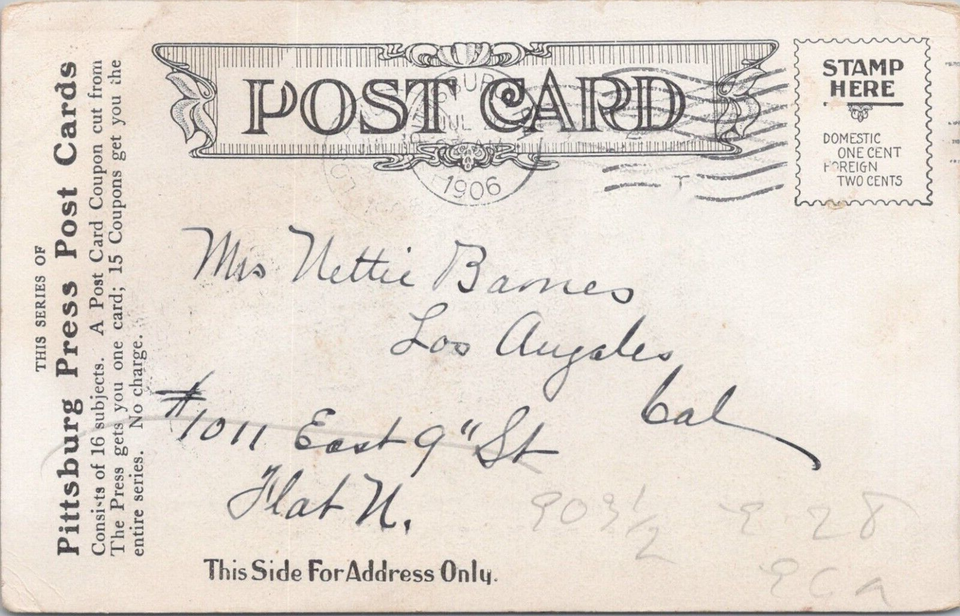 POST CARD
JUL
1906
STAMP
HERE
DOMESTIC
ONE CENT
FOREIGN
TWO CENTS
THIS SERIES OF
Pittsburg Press Post Cards
Consists of 16 subjects. A Post Card Coupon cut from
The Press gets you one card; 15 Coupons get you the
entire series. No charge.
Mrs Nettie Barnes
Los Angales
Cal
#1011 East 9" St
Flat N.
903 1/2
28
This Side For Address Only.